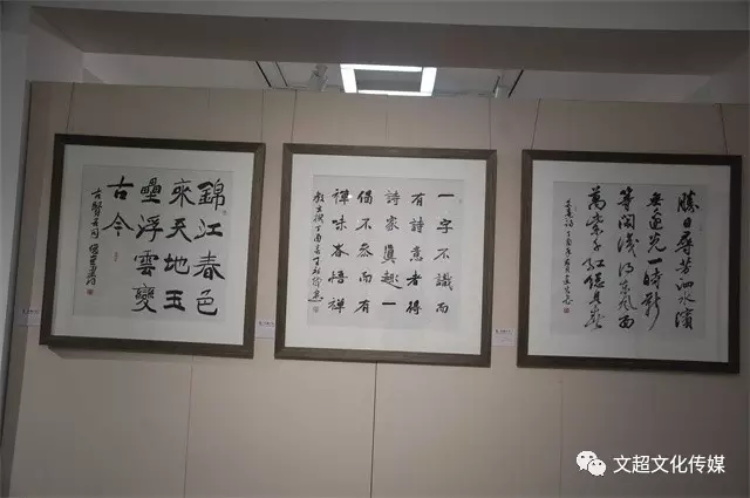 錦江春色
來天地玉
壘浮雲變
古今
一字不識而
有詩意者得
詩家眞趣一
偈不參而有
禪味者悟禪
教玄機丁酉
勝日尋芳泗水濱
無邊光一時新
等閒識得東風面
萬紫千紅總是春
朱熹詩丁酉
文超文化传媒